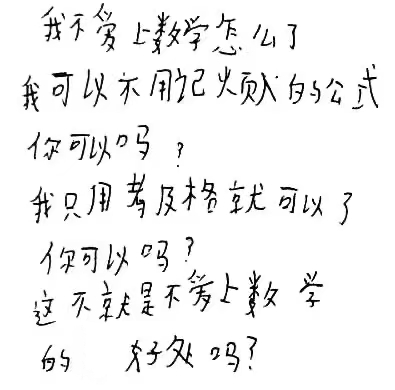 我不爱上数学怎么了
我可以不用记烦人的公式
你可以吗?
我只用考及格就可以了
你可以吗?
这不就是不爱上数学
的 好处吗?